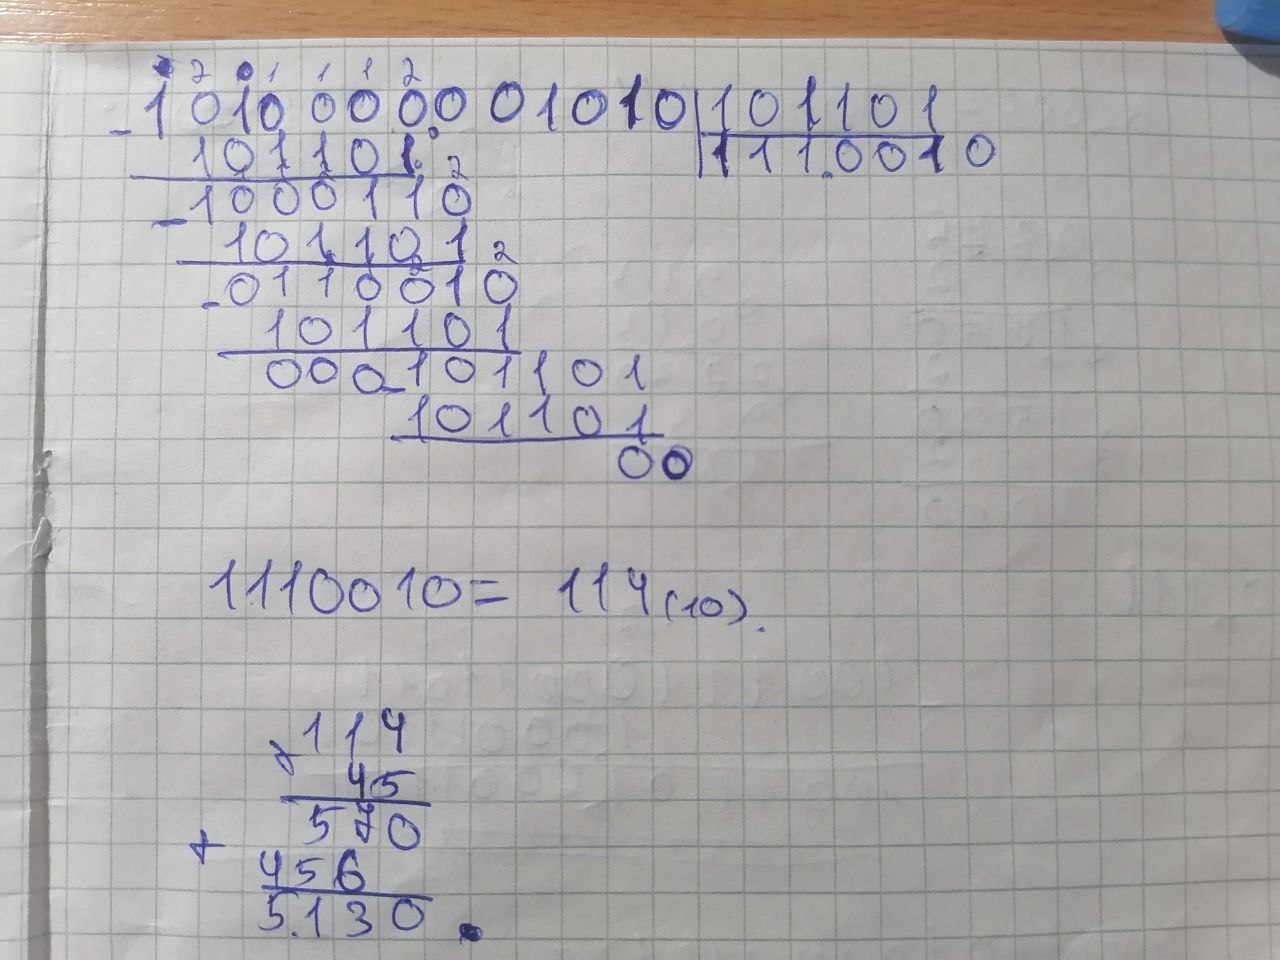 - 1010000001010 | 101101
101101 1110010
- 1000110
101101
- 0110010
101101
000 - 101101
101101
00
1110010 = 114(10).
× 114
45
570
+
456
5130